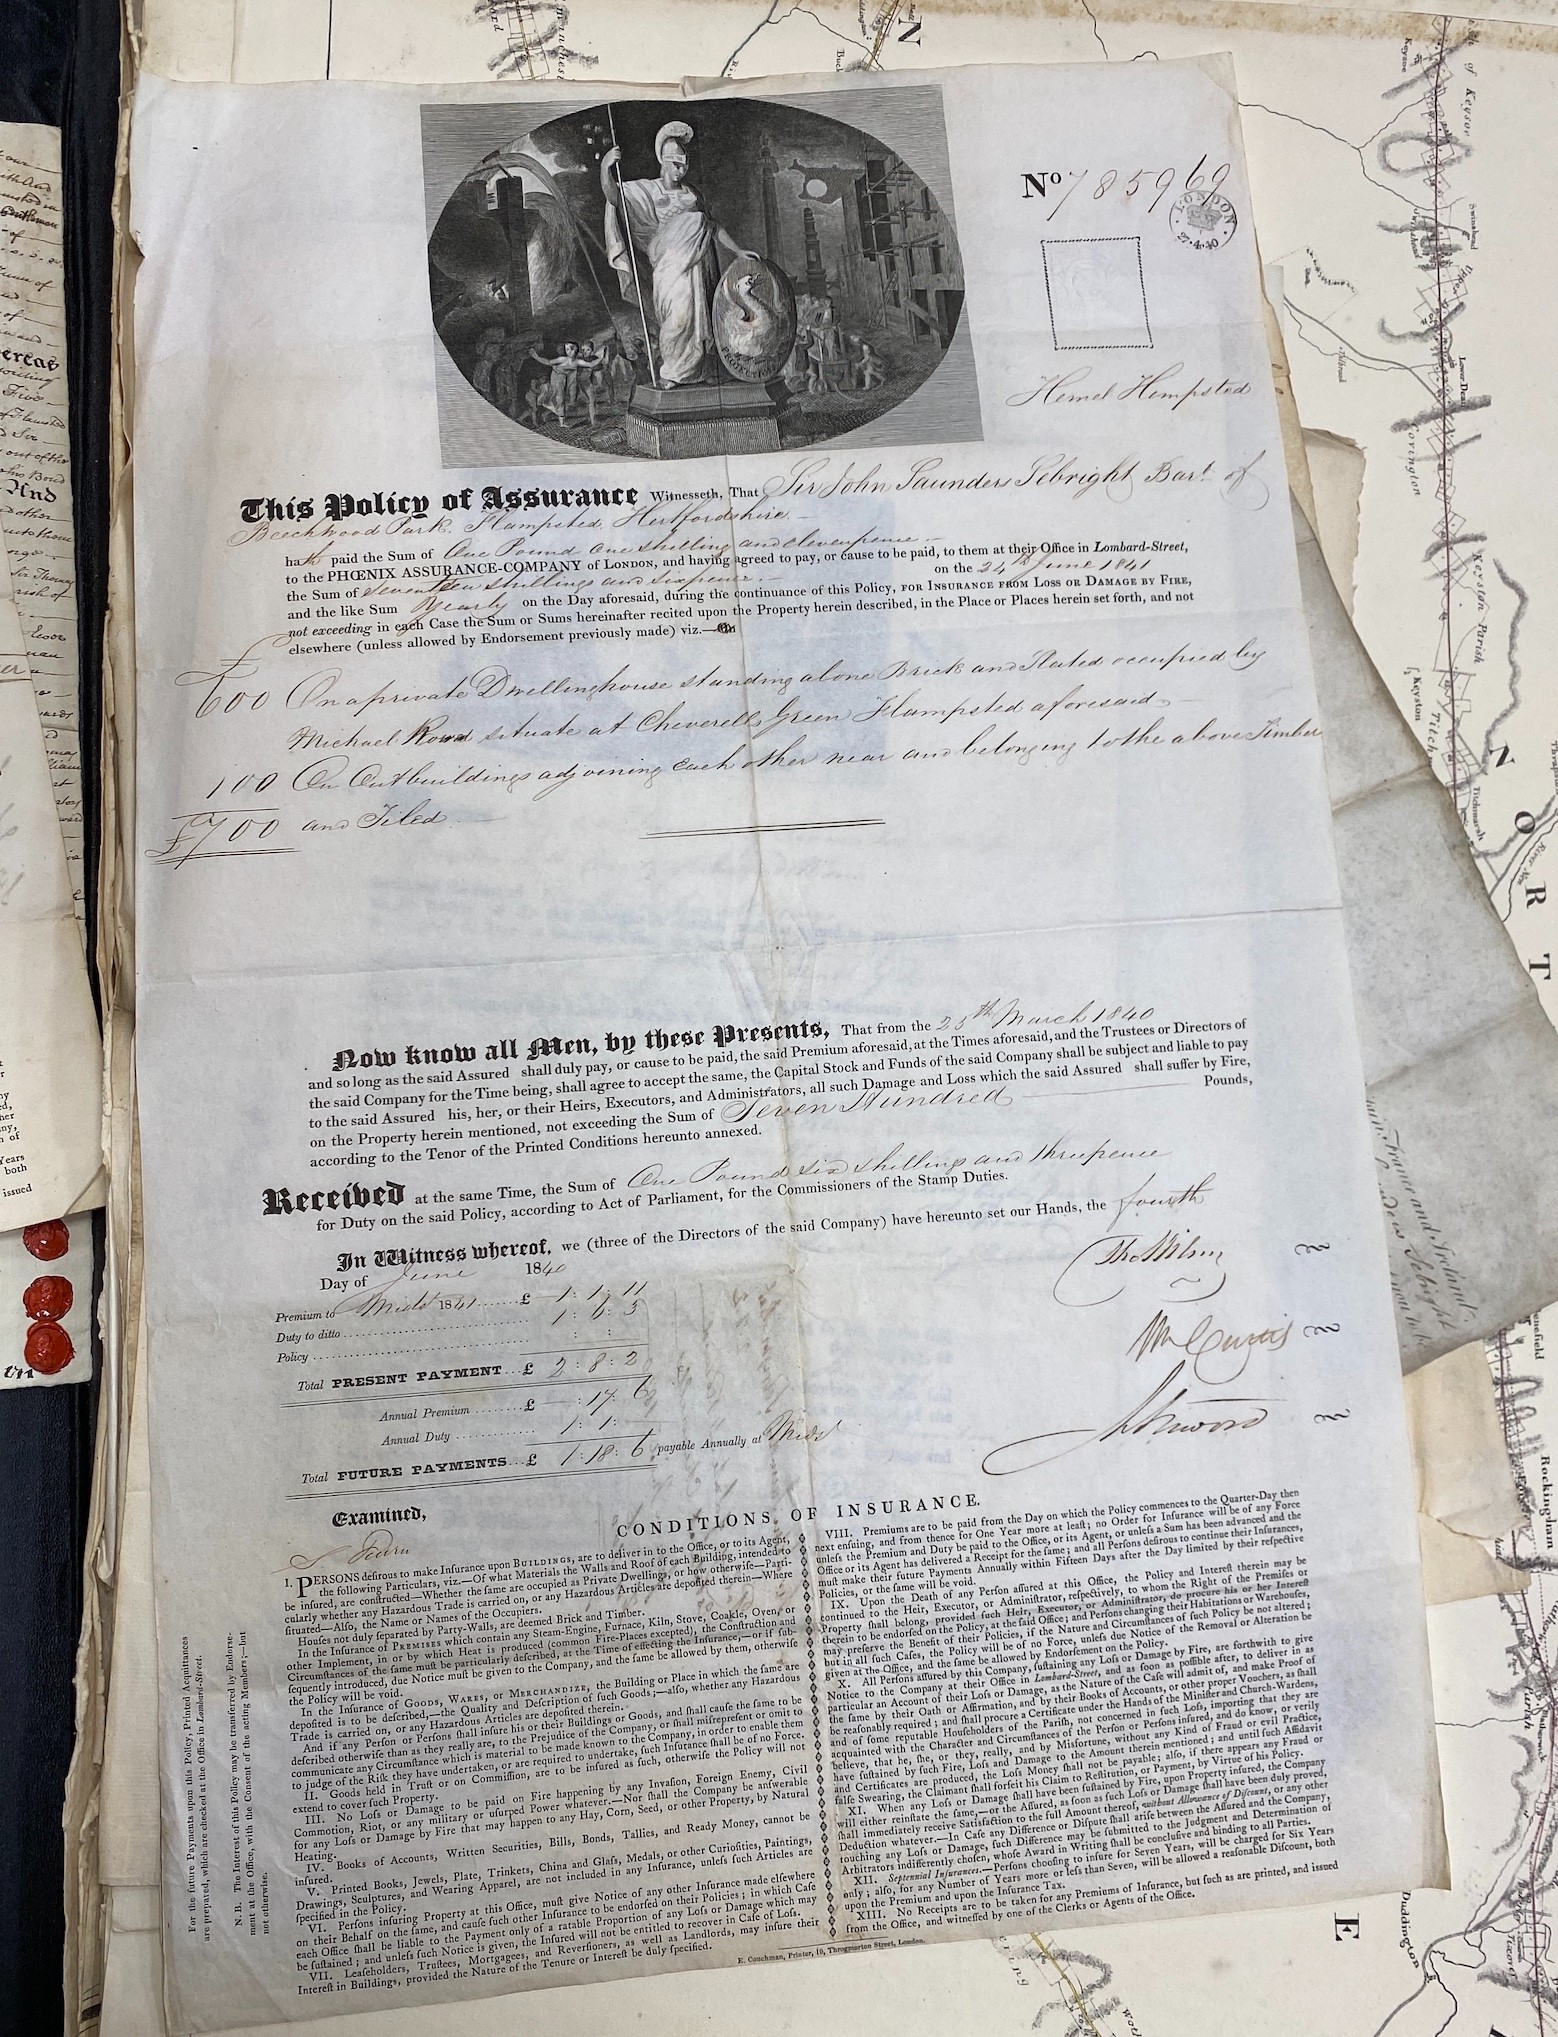 No 785969
LONDON
27·4·40
PROTECTION
Hemel Hempsted
This Policy of Assurance Witnesseth, That Sir John Saunders Sebright Bart. of
Beechwood Park, Flampsted, Hertfordshire.—
hath paid the Sum of One Pound One shilling and elevenpence.—
to the PHŒNIX ASSURANCE-COMPANY of LONDON, and having agreed to pay, or cause to be paid, to them at their Office in Lombard-Street,
the Sum of Seventeen shillings and sixpence.— on the 24th June 1841
and the like Sum Yearly on the Day aforesaid, during the continuance of this Policy, FOR INSURANCE FROM LOSS OR DAMAGE BY FIRE,
not exceeding in each Case the Sum or Sums hereinafter recited upon the Property herein described, in the Place or Places herein set forth, and not
elsewhere (unless allowed by Endorsement previously made) viz.—
£
600 On a private Dwellinghouse standing alone Brick and Slated occupied by
Michael situate at Cheverells Green Flampsted aforesaid.—
100 On Outbuildings adjoining each other near and belonging to the above Timber
£700 and Tiled
Now know all Men, by these Presents, That from the 25th March 1840
and so long as the said Assured shall duly pay, or cause to be paid, the said Premium aforesaid, at the Times aforesaid, and the Trustees or Directors of
the said Company for the Time being, shall agree to accept the same, the Capital Stock and Funds of the said Company shall be subject and liable to pay
to the said Assured his, her, or their Heirs, Executors, and Administrators, all such Damage and Loss which the said Assured shall suffer by Fire,
on the Property herein mentioned, not exceeding the Sum of Seven Hundred Pounds,
according to the Tenor of the Printed Conditions hereunto annexed.
Received at the same Time, the Sum of One Pound six shillings and threepence
for Duty on the said Policy, according to Act of Parliament, for the Commissioners of the Stamp Duties.
In Witness whereof, we (three of the Directors of the said Company) have hereunto set our Hands, the fourth
Day of June 1840
Premium to Mids 1841 £ 1:1:11
Duty to ditto 1:6:3
Policy : :
Total PRESENT PAYMENT £ 2:8:2
Annual Premium £ :17:6
Annual Duty 1:1:
Total FUTURE PAYMENTS £ 1:18:6 payable Annually at Mids
Wm Curtis
Examined,
CONDITIONS OF INSURANCE.
I. PERSONS desirous to make Insurance upon BUILDINGS, are to deliver in to the Office, or to its Agent,
the following Particulars, viz.—Of what Materials the Walls and Roof of each Building, intended to
be insured, are constructed—Whether the same are occupied as Private Dwellings, or how otherwise—Parti-
cularly whether any Hazardous Trade is carried on, or any Hazardous Articles are deposited therein—Where
situated—Also, the Name or Names of the Occupiers.
Houses not duly separated by Party-Walls, are deemed Brick and Timber.
In the Insurance of PREMISES which contain any Steam-Engine, Furnace, Kiln, Stove, Coakle, Oven, or
other Implement, in or by which Heat is produced (common Fire-Places excepted), the Construction and
Circumstances of the same must be particularly described, at the Time of effecting the Insurance,—or if sub-
sequently introduced, due Notice must be given to the Company, and the same be allowed by them, otherwise
the Policy will be void.
In the Insurance of GOODS, WARES, or MERCHANDIZE, the Building or Place in which the same are
deposited is to be described,—the Quality and Description of such Goods;—also, whether any Hazardous
Trade is carried on, or any Hazardous Articles are deposited therein.
And if any Person or Persons shall insure his or their Buildings or Goods, and shall cause the same to be
described otherwise than as they really are, to the Prejudice of the Company, or shall misrepresent or omit to
communicate any Circumstance which is material to be made known to the Company, in order to enable them
to judge of the Risk they have undertaken, or are required to undertake, such Insurance shall be of no Force.
II. Goods held in Trust or on Commission, are to be insured as such, otherwise the Policy will not
extend to cover such Property.
III. No Loss or Damage to be paid on Fire happening by any Invasion, Foreign Enemy, Civil
Commotion, Riot, or any military or usurped Power whatever.—Nor shall the Company be answerable
for any Loss or Damage by Fire that may happen to any Hay, Corn, Seed, or other Property, by Natural
Heating.
IV. Books of Accounts, Written Securities, Bills, Bonds, Tallies, and Ready Money, cannot be
insured.
V. Printed Books, Jewels, Plate, Trinkets, China and Glass, Medals, or other Curiosities, Paintings,
Drawings, Sculptures, and Wearing Apparel, are not included in any Insurance, unless such Articles are
specified in the Policy.
VI. Persons insuring Property at this Office, must give Notice of any other Insurance made elsewhere
on their Behalf on the same, and cause such other Insurance to be endorsed on their Policies; in which Case
each Office shall be liable to the Payment only of a ratable Proportion of any Loss or Damage which may
be sustained; and unless such Notice is given, the Insured will not be entitled to recover in Case of Loss.
VII. Leaseholders, Trustees, Mortgagees, and Reversioners, as well as Landlords, may insure their
Interest in Buildings, provided the Nature of the Tenure or Interest be duly specified.
VIII. Premiums are to be paid from the Day on which the Policy commences to the Quarter-Day then
next ensuing, and from thence for One Year more at least; no Order for Insurance will be of any Force
unless the Premium and Duty be paid to the Office, or its Agent, or unless a Sum has been advanced and the
Office or its Agent has delivered a Receipt for the same; and all Persons desirous to continue their Insurances,
must make their future Payments Annually within Fifteen Days after the Day limited by their respective
Policies, or the same will be void.
IX. Upon the Death of any Person assured at this Office, the Policy and Interest therein may be
continued to the Heir, Executor, or Administrator, respectively, to whom the Right of the Premises or
Property shall belong, provided such Heir, Executor, or Administrator, do procure his or her Interest
therein to be endorsed on the Policy, at the said Office; and Persons changing their Habitations or Warehouses,
may preserve the Benefit of their Policies, if the Nature and Circumstances of such Policy be not altered;
but in all such Cases, the Policy will be of no Force, unless due Notice of the Removal or Alteration be
given at the Office, and the same be allowed by Endorsement on the Policy.
X. All Persons assured by this Company, sustaining any Loss or Damage by Fire, are forthwith to give
Notice to the Company at their Office in Lombard-Street, and as soon as possible after, to deliver in as
particular an Account of their Loss or Damage, as the Nature of the Case will admit of, and make Proof of
the same by their Oath or Affirmation, and by their Books of Accounts, or other proper Vouchers, as shall
be reasonably required; and shall procure a Certificate under the Hands of the Minister and Church-Wardens,
and of some reputable Householders of the Parish, not concerned in such Loss, importing that they are
acquainted with the Character and Circumstances of the Person or Persons insured, and do know, or verily
believe, that he, she, or they, really, and by Misfortune, without any Kind of Fraud or evil Practice,
have sustained by such Fire, Loss and Damage to the Amount therein mentioned; and until such Affidavit
and Certificates are produced, the Loss Money shall not be payable; also, if there appears any Fraud or
false Swearing, the Claimant shall forfeit his Claim to Restitution, or Payment, by Virtue of his Policy.
XI. When any Loss or Damage shall have been sustained by Fire, upon Property insured, the Company
will either reinstate the same,—or the Assured, as soon as such Loss or Damage shall have been duly proved,
shall immediately receive Satisfaction to the full Amount thereof, without Allowance of Discount, or any other
Deduction whatever.—In Case any Difference or Dispute shall arise between the Assured and the Company,
touching any Loss or Damage, such Difference may be submitted to the Judgment and Determination of
Arbitrators indifferently chosen, whose Award in Writing shall be conclusive and binding to all Parties.
XII. Septennial Insurances.—Persons choosing to insure for Seven Years, will be charged for Six Years
only; also, for any Number of Years more or less than Seven, will be allowed a reasonable Discount, both
upon the Premium and upon the Insurance Tax.
XIII. No Receipts are to be taken for any Premiums of Insurance, but such as are printed, and issued
from the Office, and witnessed by one of the Clerks or Agents of the Office.
E. Couchman, Printer, 10, Throgmorton Street, London.
For the future Payments upon this Policy, Printed Acquittances
are prepared, which are checked at the Office in Lombard-Street.
N. B. The Interest of this Policy may be transferred by Endorse-
ment at the Office, with the Consent of the acting Members;—but
not otherwise.
N
Keysoe
Swineshead
Lower Dean
Covington
Keyston Parish
Keyston
Titchmarsh
N
O
R
T
Rockingham
Duddington
E